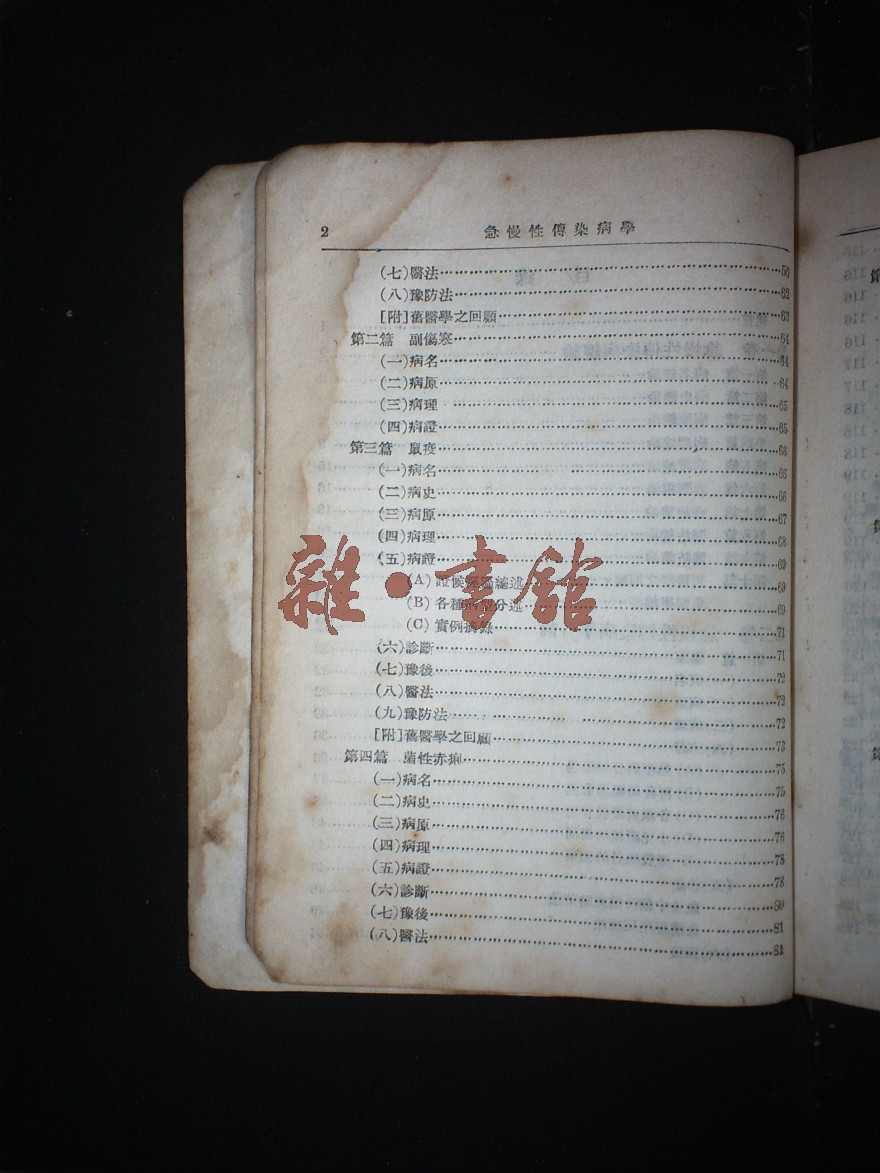 2 急慢性傳染病學
(七)醫法……56
(八)豫防法……62
[附]舊醫學之回顧……63
第二篇 副傷寒……64
(一)病名……64
(二)病原……64
(三)病理……65
(四)病證……65
第三篇 鼠疫……66
(一)病名……66
(二)病史……66
(三)病原……67
(四)病理……68
(五)病證……69
(A) 證候 總述……69
(B) 各種病型分述……69
(C) 實例摘錄……71
(六)診斷……71
(七)豫後……72
(八)醫法……72
(九)豫防法……72
[附]舊醫學之回顧……73
第四篇 菌性赤痢……75
(一)病名……75
(二)病史……76
(三)病原……76
(四)病理……78
(五)病證……78
(六)診斷……80
(七)豫後……81
(八)醫法……81
雜·書館